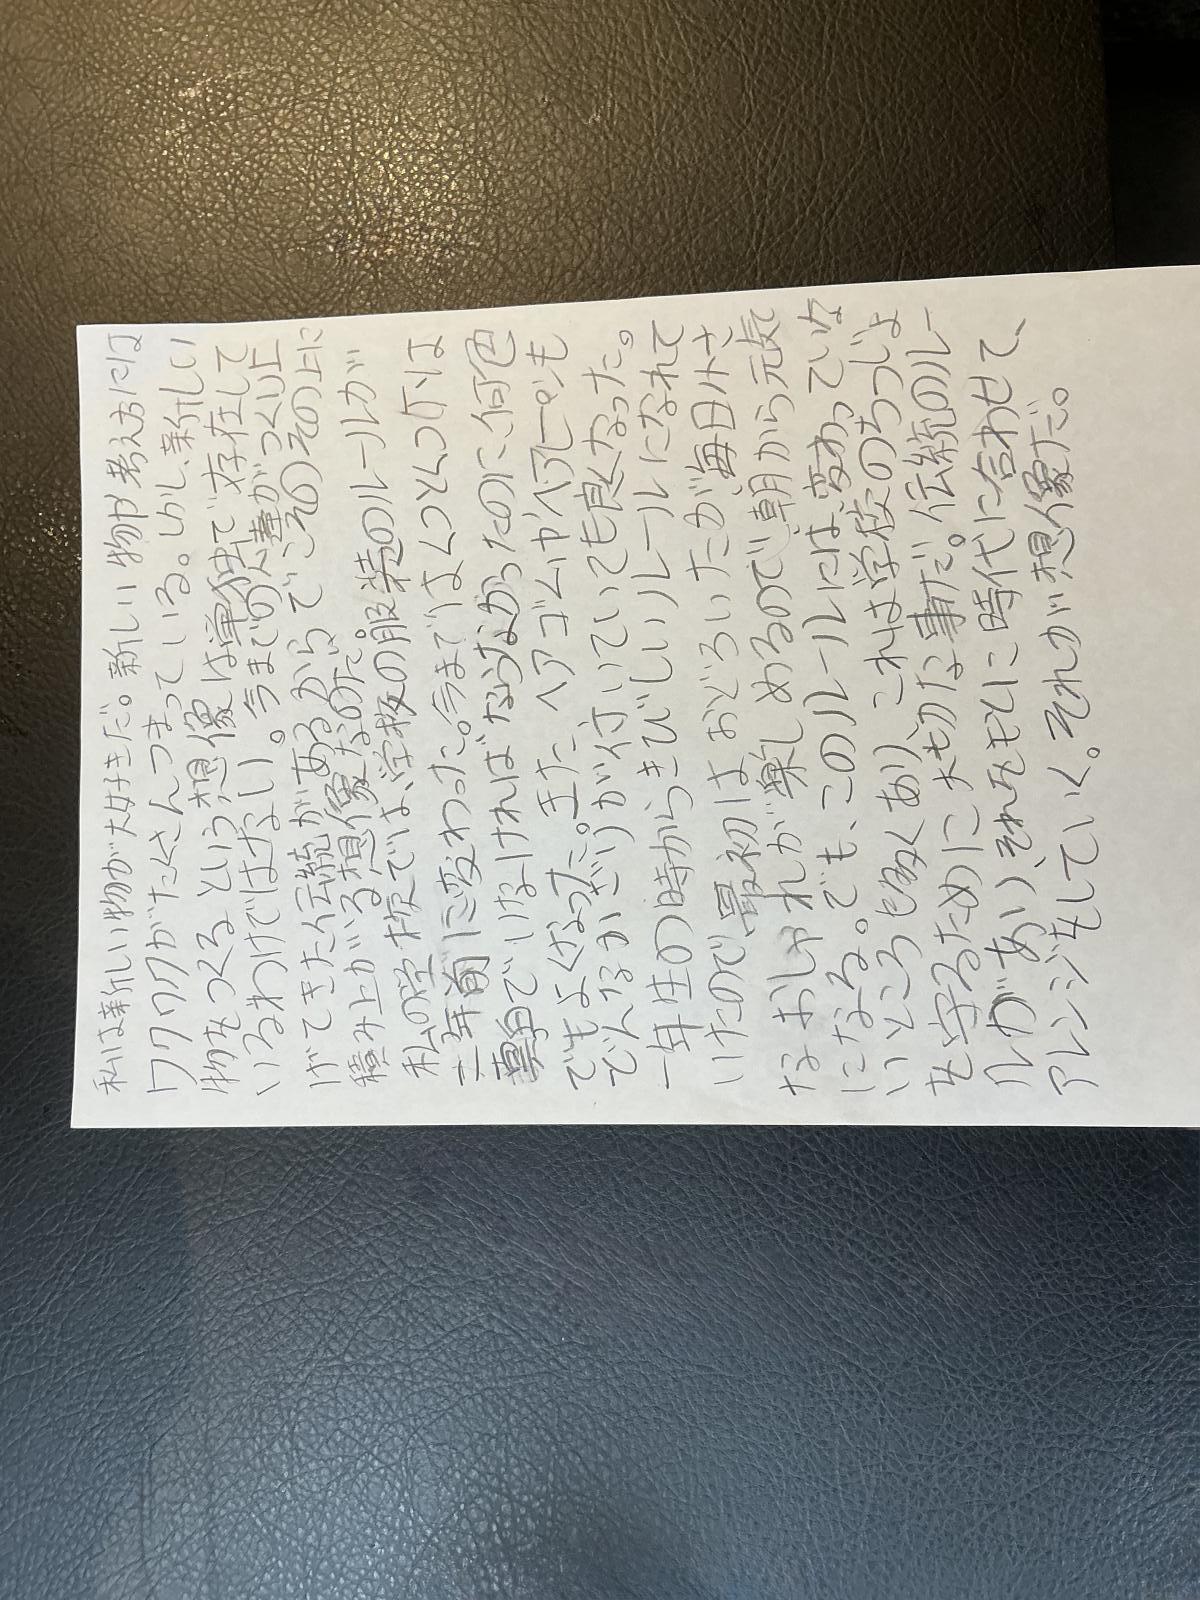 私は新しい物が大好きだ。新しい物や考え方には
ワクワクがたくさんつまっている。しかし、新しい
物をつくるという想像は単独で存在して
いるわけではない。今までの人達がつくり上
げてきた伝統があるからで、そのその上に
積み上がる想像なのだ。
私の学校では、学校の服装のルールが
二年前に変わった。今まではくつとくつ下は
真っ白でいなければならなかったのに、何色
でもよくなった。また、ヘアゴムやヘアピンも
どんなかざりが付いていても良くなった。
一年生の時からきびしいルールになれて
いたので、最初はおどろいたが、毎日小さ
なおしゃれが楽しめるので、朝から元気
になる。でも、このルールには変わっていな
いところも多くあり、これは学校のちつじょ
を守るために大切な事だ。伝統のルー
ルがあり、それをもとに時代に合わせて、
アレンジをしていく。それが想像だ。